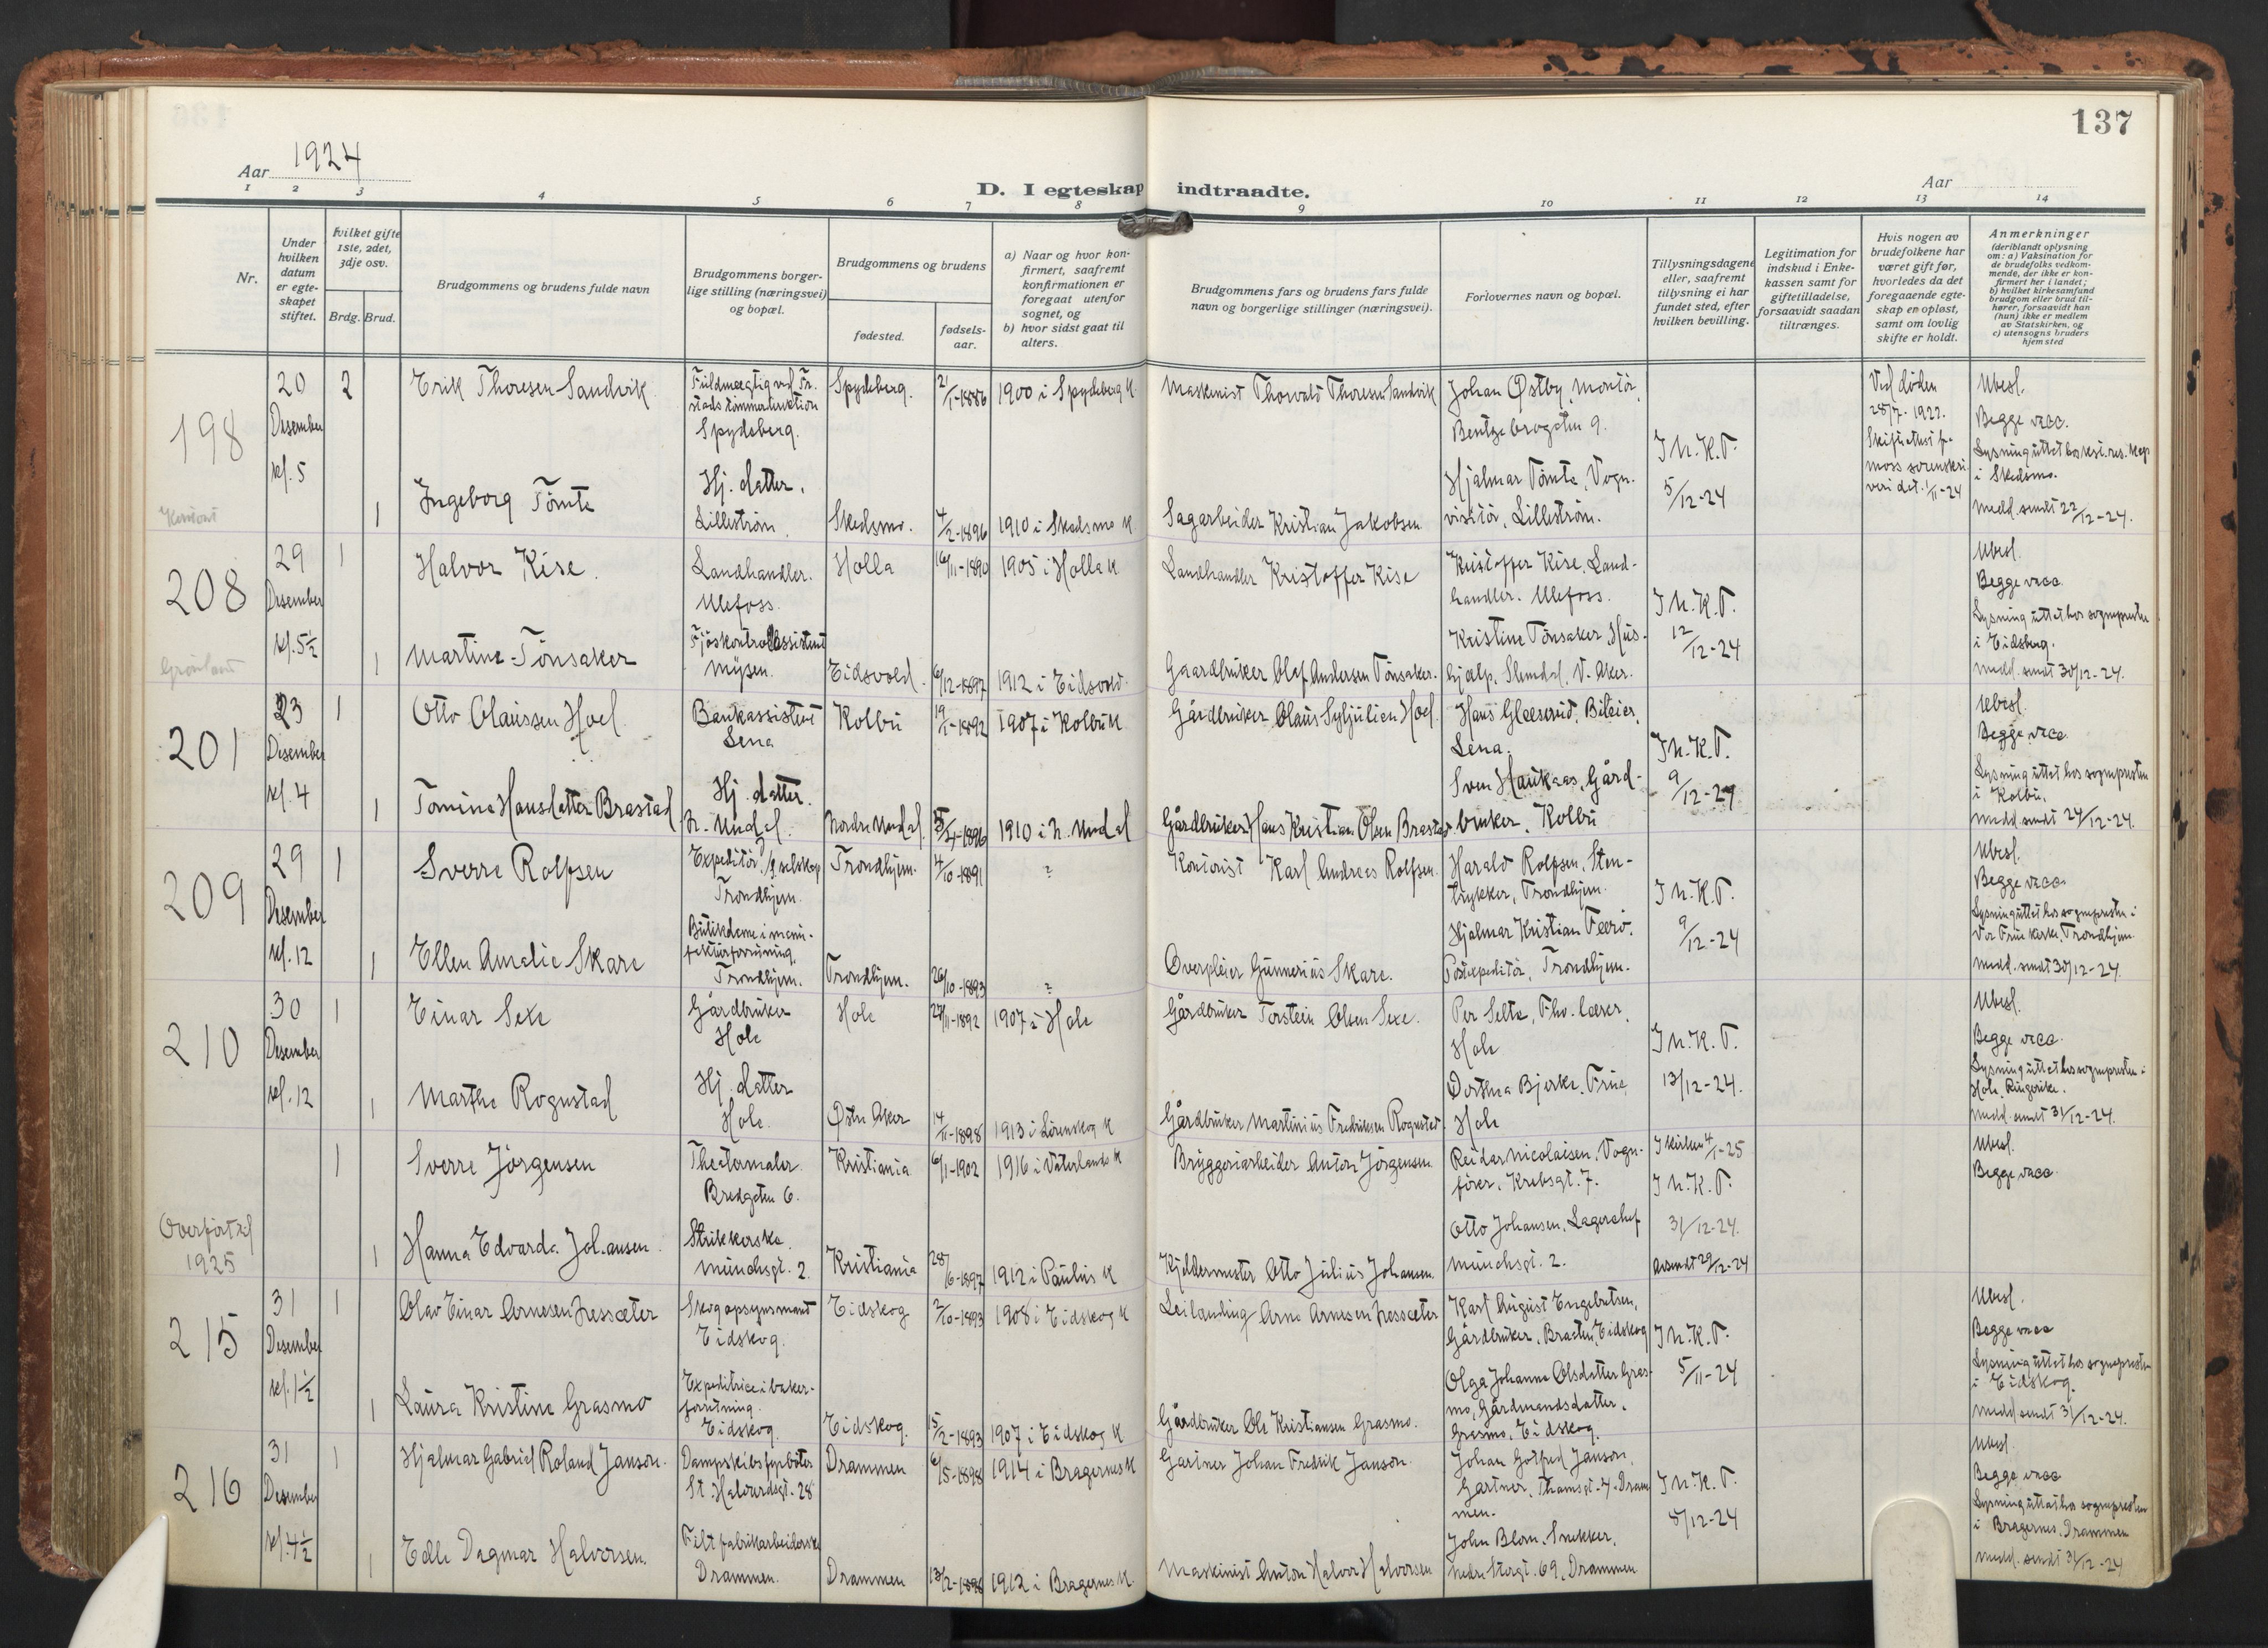 137
Aar 1924
D. I egteskap indtraadte.
Aar
1 2 3 4 5 6 7 8 9 10 11 12 13 14
Nr.
Under hvilken datum er egte-skapet stiftet.
hvilket gifte 1ste, 2det, 3dje osv.
Brdg. Brud.
Brudgommens og brudens fulde navn
Brudgommens borger-lige stilling (næringsvei) og bopæl.
Brudgommens og brudens
fødested.
fødsels-aar.
a) Naar og hvor kon-firmert, saafremt konfirmationen er foregaat utenfor sognet, og
b) hvor sidst gaat til alters.
Brudgommens fars og brudens fars fulde navn og borgerlige stillinger (næringsvei).
Forlovernes navn og bopæl.
Tillysningsdagene eller, saafremt tillysning ei har fundet sted, efter hvilken bevilling.
Legitimation for indskud i Enke-kassen samt for giftetilladelse, forsaavidt saadan tiltrænges.
Hvis nogen av brudefolkene har været gift før, hvorledes da det foregaaende egte-skap er opløst, samt om lovlig skifte er holdt.
Anmerkninger (deriblandt oplysning om: a) Vaksination for de brudefolks vedkom-mende, der ikke er kon-firmert her i landet; b) hvilket kirkesamfund brudgom eller brud til-hører, forsaavidt han (hun) ikke er medlem av Statskirken, og c) utensogns bruders hjemsted
198
20 Desember kl. 5
2
Erik Thoresen Sandvik
Fuldmægtig ved Fr. stads tømmerdirektion Spydeberg.
Spydeberg.
21/1-1886
1900 i Spydeberg K.
Maskinist Thorvald Thoresen Sandvik
Johan Østby, Montør, Bentsebrogaten 9.
J N.K.T.
5/12-24
Ved døden 28/7-1922.
Skifteattest fra Moss sorenskriveri dat. 1/11-24
Ubesl.
Begge vacc.
Lysning uttat hos res. kap. i Skedsmo.
Medd. sendt 22/12-24.
1
Ingeborg Tömte
Hj. datter, Lilleström.
Skedsmo.
4/2-1896
1910 i Skedsmo K
Sagarbeider Kristian Jakobsen
Hjalmar Tömte, Vogn-visitör, Lilleström.
208
29 Desember kl. 5½
1
Halvor Kise.
Landhandler. Ulefoss.
Holla
16/11-1890
1905 i Holla K
Landhandler Kristoffer Kise
Kristoffer Kise, Land-handler. Ulefoss.
J N.K.T.
12/12-24
Ubesl.
Begge vacc.
Lysning uttat hos sognepresten i Eidsberg.
Medd. sendt 30/12-24.
Grønland
1
Martine Tönsaker
Fjöskontrollassistent Mysen.
Eidsvold.
6/12-1897
1912 i Eidsvold.
Gaardbruker Olaf Andersen Tönsaker.
Kristine Tönsaker, Hus-hjælp, Slemdal, V. Aker.
201
23 Desember kl. 4
1
Otto Olaussen Hoel
Bankassistent Lena
Kolbu
19/1-1892
1907 i Kolbu K
Gårdbruker Olaus Syljulien Hoel.
Hans Gleeserud, Bileier, Lena.
J N.K.T.
9/12-24
Ubesl.
Begge vacc.
Lysning uttat hos sognepresten i Kolbu.
Medd. sendt 24/12-24.
1
Tomine Hansdatter Brastad
Hj. datter. N. Undal.
Nordre Undal.
1910 i N. Undal
Gårdbruker Hans Kristian Olsen Brastad
Sven Haukaas, Gård-bruker, Kolbu
209
29 Desember kl. 12
1
Sverre Rolfsen
Trondhjem.
Trondhjem.
4/10-1891
?
Kontorist Karl Andreas Rolfsen
Harald Rolfsen, Sten-trykker, Trondhjem.
J N.K.T.
9/12-24
Ubesl.
Begge vacc.
Lysning uttat hos sognepresten i Vor Frue kirke, Trondhjem.
Medd. sendt 30/12-24.
1
Ellen Amalie Skare
Butikdame i manu-fakturforretning, Trondhjem.
Trondhjem.
26/10-1893
?
Overpleier Gunnerius Skare.
Hjalmar Kristian Feerö, Postexpeditör, Trondhjem.
210
30 Desember kl. 12
1
Einar Sexe
Gårdbruker Hole
Hole
27/11-1892
1907 i Hole
Gårdbruker Torstein Olsen Sexe.
Per Selte, Fhv. lærer, Hole
J N.K.T.
13/12-24.
Ubesl.
Begge vacc.
Lysning uttat hos sognepresten i Hole, Ringerike.
Medd. sendt 31/12-24.
1
Marthe Rognstad
Hj. datter Hole.
Østre Aker
14/11-1898
1913 i Lörenskog K
Gårdbruker Martinius Fredriksen Rognstad.
Dorthea Bjerke, Frue, Hole
Overfört til 1925
1
Sverre Jörgensen
Theatermaler Bredgaten 6.
Kristiania
6/1-1902
1916 i Vaterlands K
Bryggeriarbeider Anton Jörgensen.
Reidar Nicolaisen, Vogn-fører, Krebsgt. 7.
I kirken 4/1-25
J N.K.T.
31/12-24.
Avsendt 29/12-24
Ubesl.
Begge vacc.
1
Hanna Edvarda Johansen.
Strikkerske. Munchsgt. 2.
Kristiania
28/6-1897
1912 i Paulus K
Kjeldermester Otto Julius Johansen.
Otto Johansen, Lagerchef Munchsgt. 2.
215
31 Desember kl. 1½
1
Olav Einar Arnesen Jessæter
Skogopsynsmand Eidskog.
Eidskog
2/10-1893
1908 i Eidskog K
Leilending Arne Arnesen Jessæter
Karl August Engebretsen, Gårdbruker, Braaten, Eidskog
J N.K.T.
5/11-24
Ubesl.
Begge vacc
Lysning uttat hos sognepresten i Eidskog.
Medd. sendt 31/12-24.
1
Laura Kristine Grasmo
Expeditrice i baker-forretning. Eidskog.
Eidskog.
5/2-1893
1907 i Eidskog K
Gårdbruker Ole Kristiansen Grasmo.
Olga Johanne Olsdatter Gras-mo, Gårdmandsdatter, Grasmo, Eidskog.
216
31 Desember kl. 4½
1
Hjalmar Gabriel Roland Janson.
Dampskibsfyrböter St. Halvardsgt. 28
Drammen
6/5-1898
1914 i Bragernes K
Gartner Johan Fredrik Janson.
Johan Gotfred Janson, Gartner, Thamsgt. 7, Dram-men.
J N.K.T.
8/12-24
Ubesl.
Begge vacc
Lysning uttat hos sognepresten i Bragernes, Drammen
Medd. sendt 31/12-24
1
Edle Dagmar Halvorsen.
Filtfabrikarbeiderske Drammen.
Drammen
1912 i Bragernes K.
Maskinist Anton Halvor Halvorsen
John Blom, Snekker, Nedre Storgt. 69, Drammen.